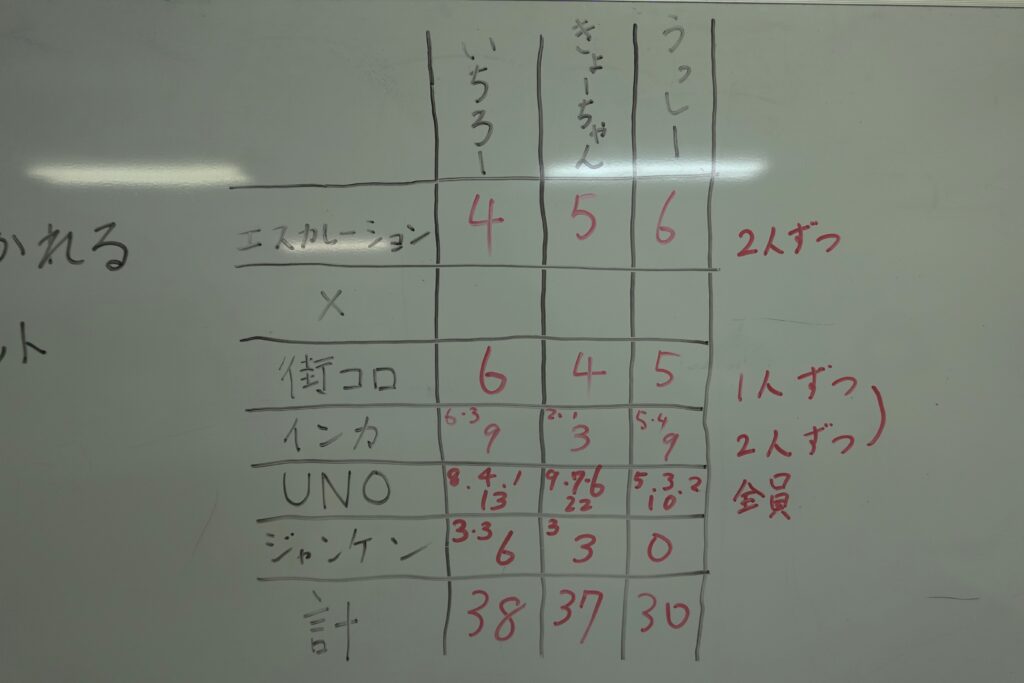 いちろー きょーちゃん うっしー
エスカレーション 4 5 6 2人ずつ
かれる
×
ット
街コロ 6 4 5 1人ずつ
インカ 6・3 9 2・1 3 5・4 9 2人ずつ
UNO 8・4・1 13 9・7・6 22 5・3・2 10 全員
ジャンケン 3・3 6 3 3 0
計 38 37 30